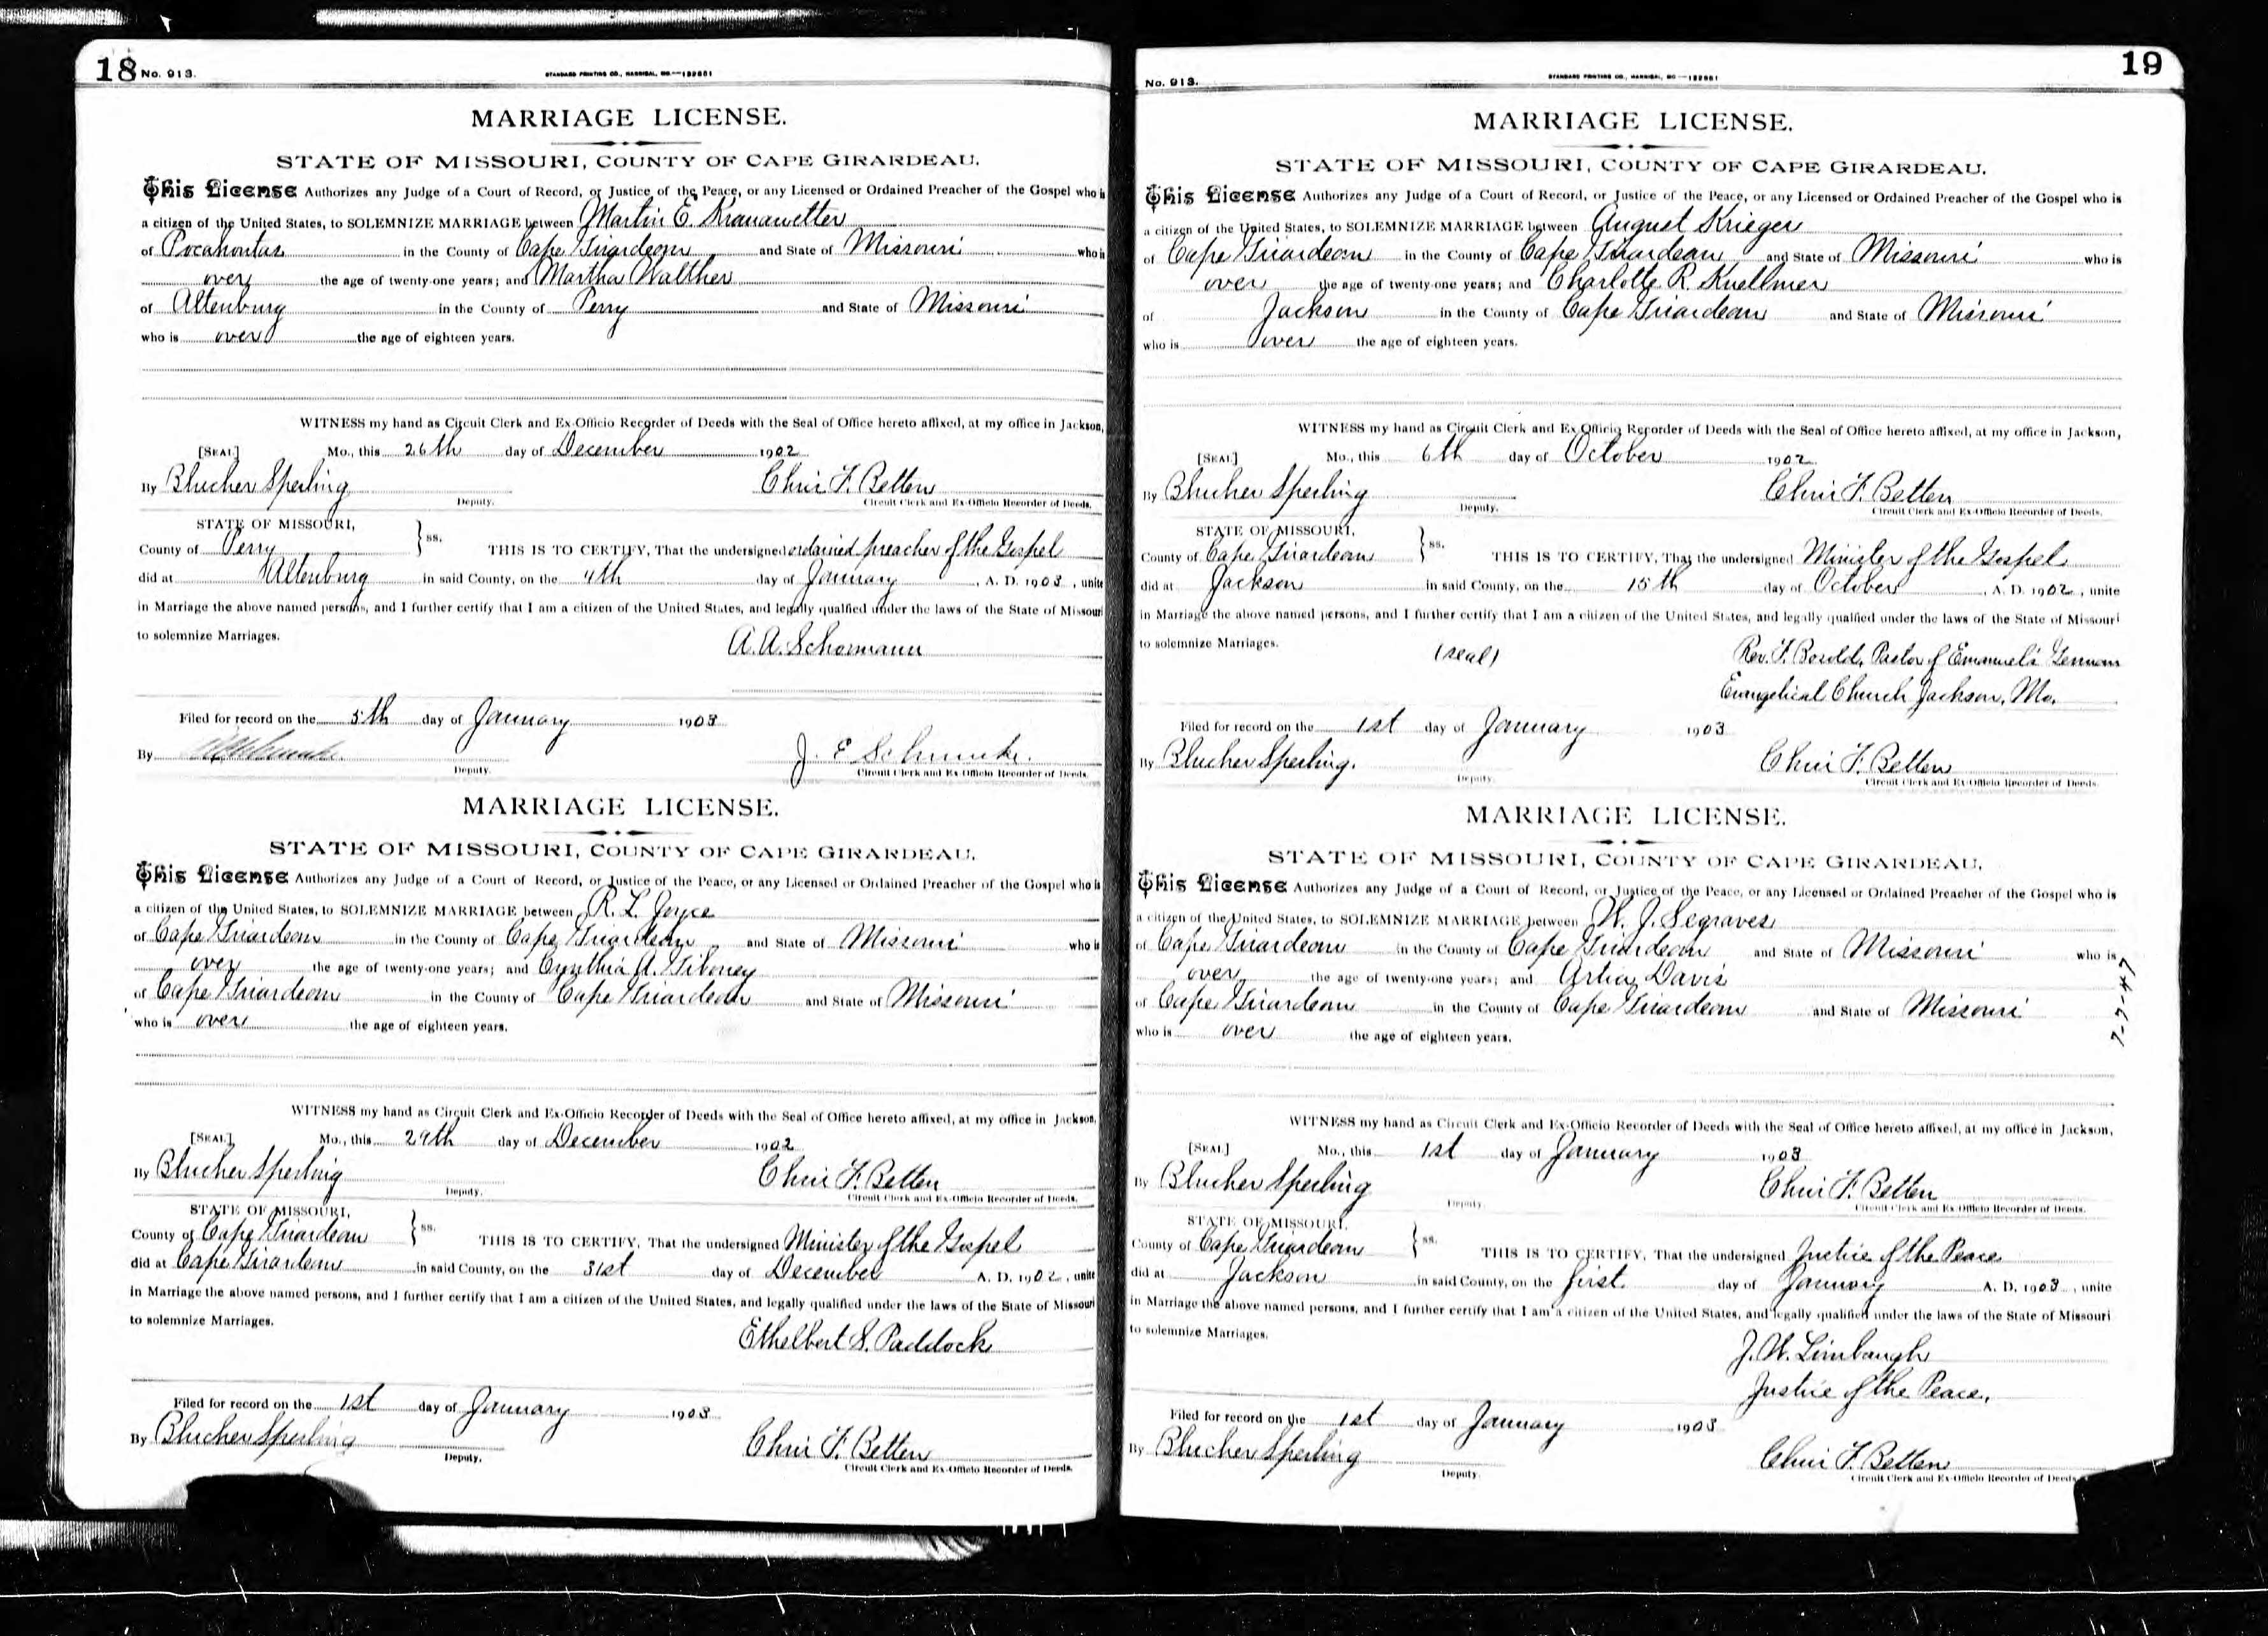 18 No. 913.
STANDARD PRINTING CO., HANNIBAL, MO.—132661
MARRIAGE LICENSE.
STATE OF MISSOURI, COUNTY OF CAPE GIRARDEAU.
This License Authorizes any Judge of a Court of Record, or Justice of the Peace, or any Licensed or Ordained Preacher of the Gospel who is
a citizen of the United States, to SOLEMNIZE MARRIAGE between Martin E. Kranawetter
of Pocahontas in the County of Cape Girardeau and State of Missouri who is
over the age of twenty-one years; and Martha Walther
of Altenburg in the County of Perry and State of Missouri
who is over the age of eighteen years.
WITNESS my hand as Circuit Clerk and Ex-Officio Recorder of Deeds with the Seal of Office hereto affixed, at my office in Jackson,
[SEAL] Mo., this 26th day of December 1902
By Blucher Sperling Chris F. Betten
Deputy. Circuit Clerk and Ex-Officio Recorder of Deeds.
STATE OF MISSOURI,
County of Perry } ss. THIS IS TO CERTIFY, That the undersigned ordained preacher of the Gospel
did at Altenburg in said County, on the 4th day of January, A. D. 1903, unite
in Marriage the above named persons, and I further certify that I am a citizen of the United States, and legally qualified under the laws of the State of Missouri
to solemnize Marriages.
A. A. Schormann
Filed for record on the 5th day of January 1903
By J. E Schmuke.
Deputy. Circuit Clerk and Ex Officio Recorder of Deeds.
MARRIAGE LICENSE.
STATE OF MISSOURI, COUNTY OF CAPE GIRARDEAU.
This License Authorizes any Judge of a Court of Record, or Justice of the Peace, or any Licensed or Ordained Preacher of the Gospel who is
a citizen of the United States, to SOLEMNIZE MARRIAGE between R. L. Joyce
of Cape Girardeau in the County of Cape Girardeau and State of Missouri who is
over the age of twenty-one years; and Cynthia A. Giboney
of Cape Girardeau in the County of Cape Girardeau and State of Missouri
who is over the age of eighteen years.
WITNESS my hand as Circuit Clerk and Ex-Officio Recorder of Deeds with the Seal of Office hereto affixed, at my office in Jackson,
[SEAL] Mo., this 29th day of December 1902
By Blucher Sperling Chris F. Betten
Deputy. Circuit Clerk and Ex-Officio Recorder of Deeds.
STATE OF MISSOURI,
County of Cape Girardeau } ss. THIS IS TO CERTIFY, That the undersigned Minister of the Gospel
did at Cape Girardeau in said County, on the 31st day of December A. D. 1902, unite
in Marriage the above named persons, and I further certify that I am a citizen of the United States, and legally qualified under the laws of the State of Missouri
to solemnize Marriages.
Ethelbert S. Paddock
Filed for record on the 1st day of January 1903
By Blucher Sperling Chris F. Betten
Deputy. Circuit Clerk and Ex-Officio Recorder of Deeds.
No. 913. 19
STANDARD PRINTING CO., HANNIBAL, MO.—132661
MARRIAGE LICENSE.
STATE OF MISSOURI, COUNTY OF CAPE GIRARDEAU.
This License Authorizes any Judge of a Court of Record, or Justice of the Peace, or any Licensed or Ordained Preacher of the Gospel who is
a citizen of the United States, to SOLEMNIZE MARRIAGE between August Krieger
of Cape Girardeau in the County of Cape Girardeau and State of Missouri who is
over the age of twenty-one years; and Charlotte R. Kuellmer
of Jackson in the County of Cape Girardeau and State of Missouri
who is over the age of eighteen years.
WITNESS my hand as Circuit Clerk and Ex Officio Recorder of Deeds with the Seal of Office hereto affixed, at my office in Jackson,
[SEAL] Mo., this 6th day of October 1902
By Blucher Sperling Chris F. Betten
Deputy. Circuit Clerk and Ex-Officio Recorder of Deeds.
STATE OF MISSOURI,
County of Cape Girardeau } ss. THIS IS TO CERTIFY, That the undersigned Minister of the Gospel
did at Jackson in said County, on the 15th day of October, A. D. 1902, unite
in Marriage the above named persons, and I further certify that I am a citizen of the United States, and legally qualified under the laws of the State of Missouri
to solemnize Marriages.
(seal) Rev. F. Bosold, Pastor of Emanuel's German
Evangelical Church Jackson, Mo.
Filed for record on the 1st day of January 1903
By Blucher Sperling. Chris F. Betten
Deputy. Circuit Clerk and Ex-Officio Recorder of Deeds.
MARRIAGE LICENSE.
STATE OF MISSOURI, COUNTY OF CAPE GIRARDEAU.
This License Authorizes any Judge of a Court of Record, or Justice of the Peace, or any Licensed or Ordained Preacher of the Gospel who is
a citizen of the United States, to SOLEMNIZE MARRIAGE between W. J. Segraves
of Cape Girardeau in the County of Cape Girardeau and State of Missouri who is
over the age of twenty-one years; and Artia Davis
of Cape Girardeau in the County of Cape Girardeau and State of Missouri
who is over the age of eighteen years.
7-7-47
WITNESS my hand as Circuit Clerk and Ex-Officio Recorder of Deeds with the Seal of Office hereto affixed, at my office in Jackson,
[SEAL] Mo., this 1st day of January 1903
By Blucher Sperling Chris F. Betten
Deputy. Circuit Clerk and Ex-Officio Recorder of Deeds.
STATE OF MISSOURI,
County of Cape Girardeau } ss. THIS IS TO CERTIFY, That the undersigned Justice of the Peace
did at Jackson in said County, on the first day of January A. D. 1903, unite
in Marriage the above named persons, and I further certify that I am a citizen of the United States, and legally qualified under the laws of the State of Missouri
to solemnize Marriages.
J. W. Limbaugh
Justice of the Peace.
Filed for record on the 1st day of January 1903
By Blucher Sperling Chris F. Betten
Deputy. Circuit Clerk and Ex-Officio Recorder of Deeds